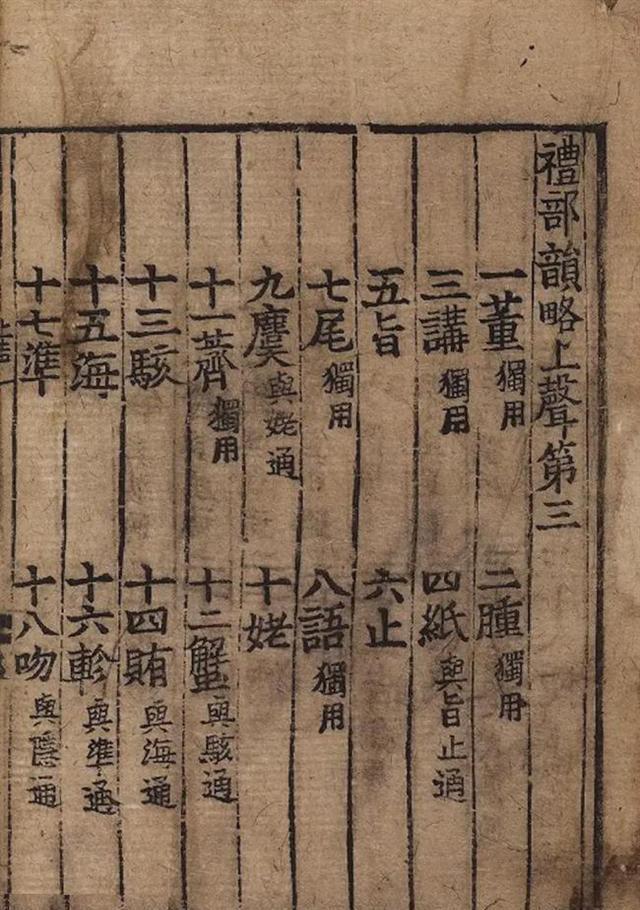 禮部韻略上聲第三
一董獨用 二腫獨用
三講獨用 四紙與旨止通
五旨 六止
七尾獨用 八語獨用
九麌與姥通 十姥
十一薺獨用 十二蟹與駭通
十三駭 十四賄與海通
十五海 十六軫與準通
十七準 十八吻與隱通